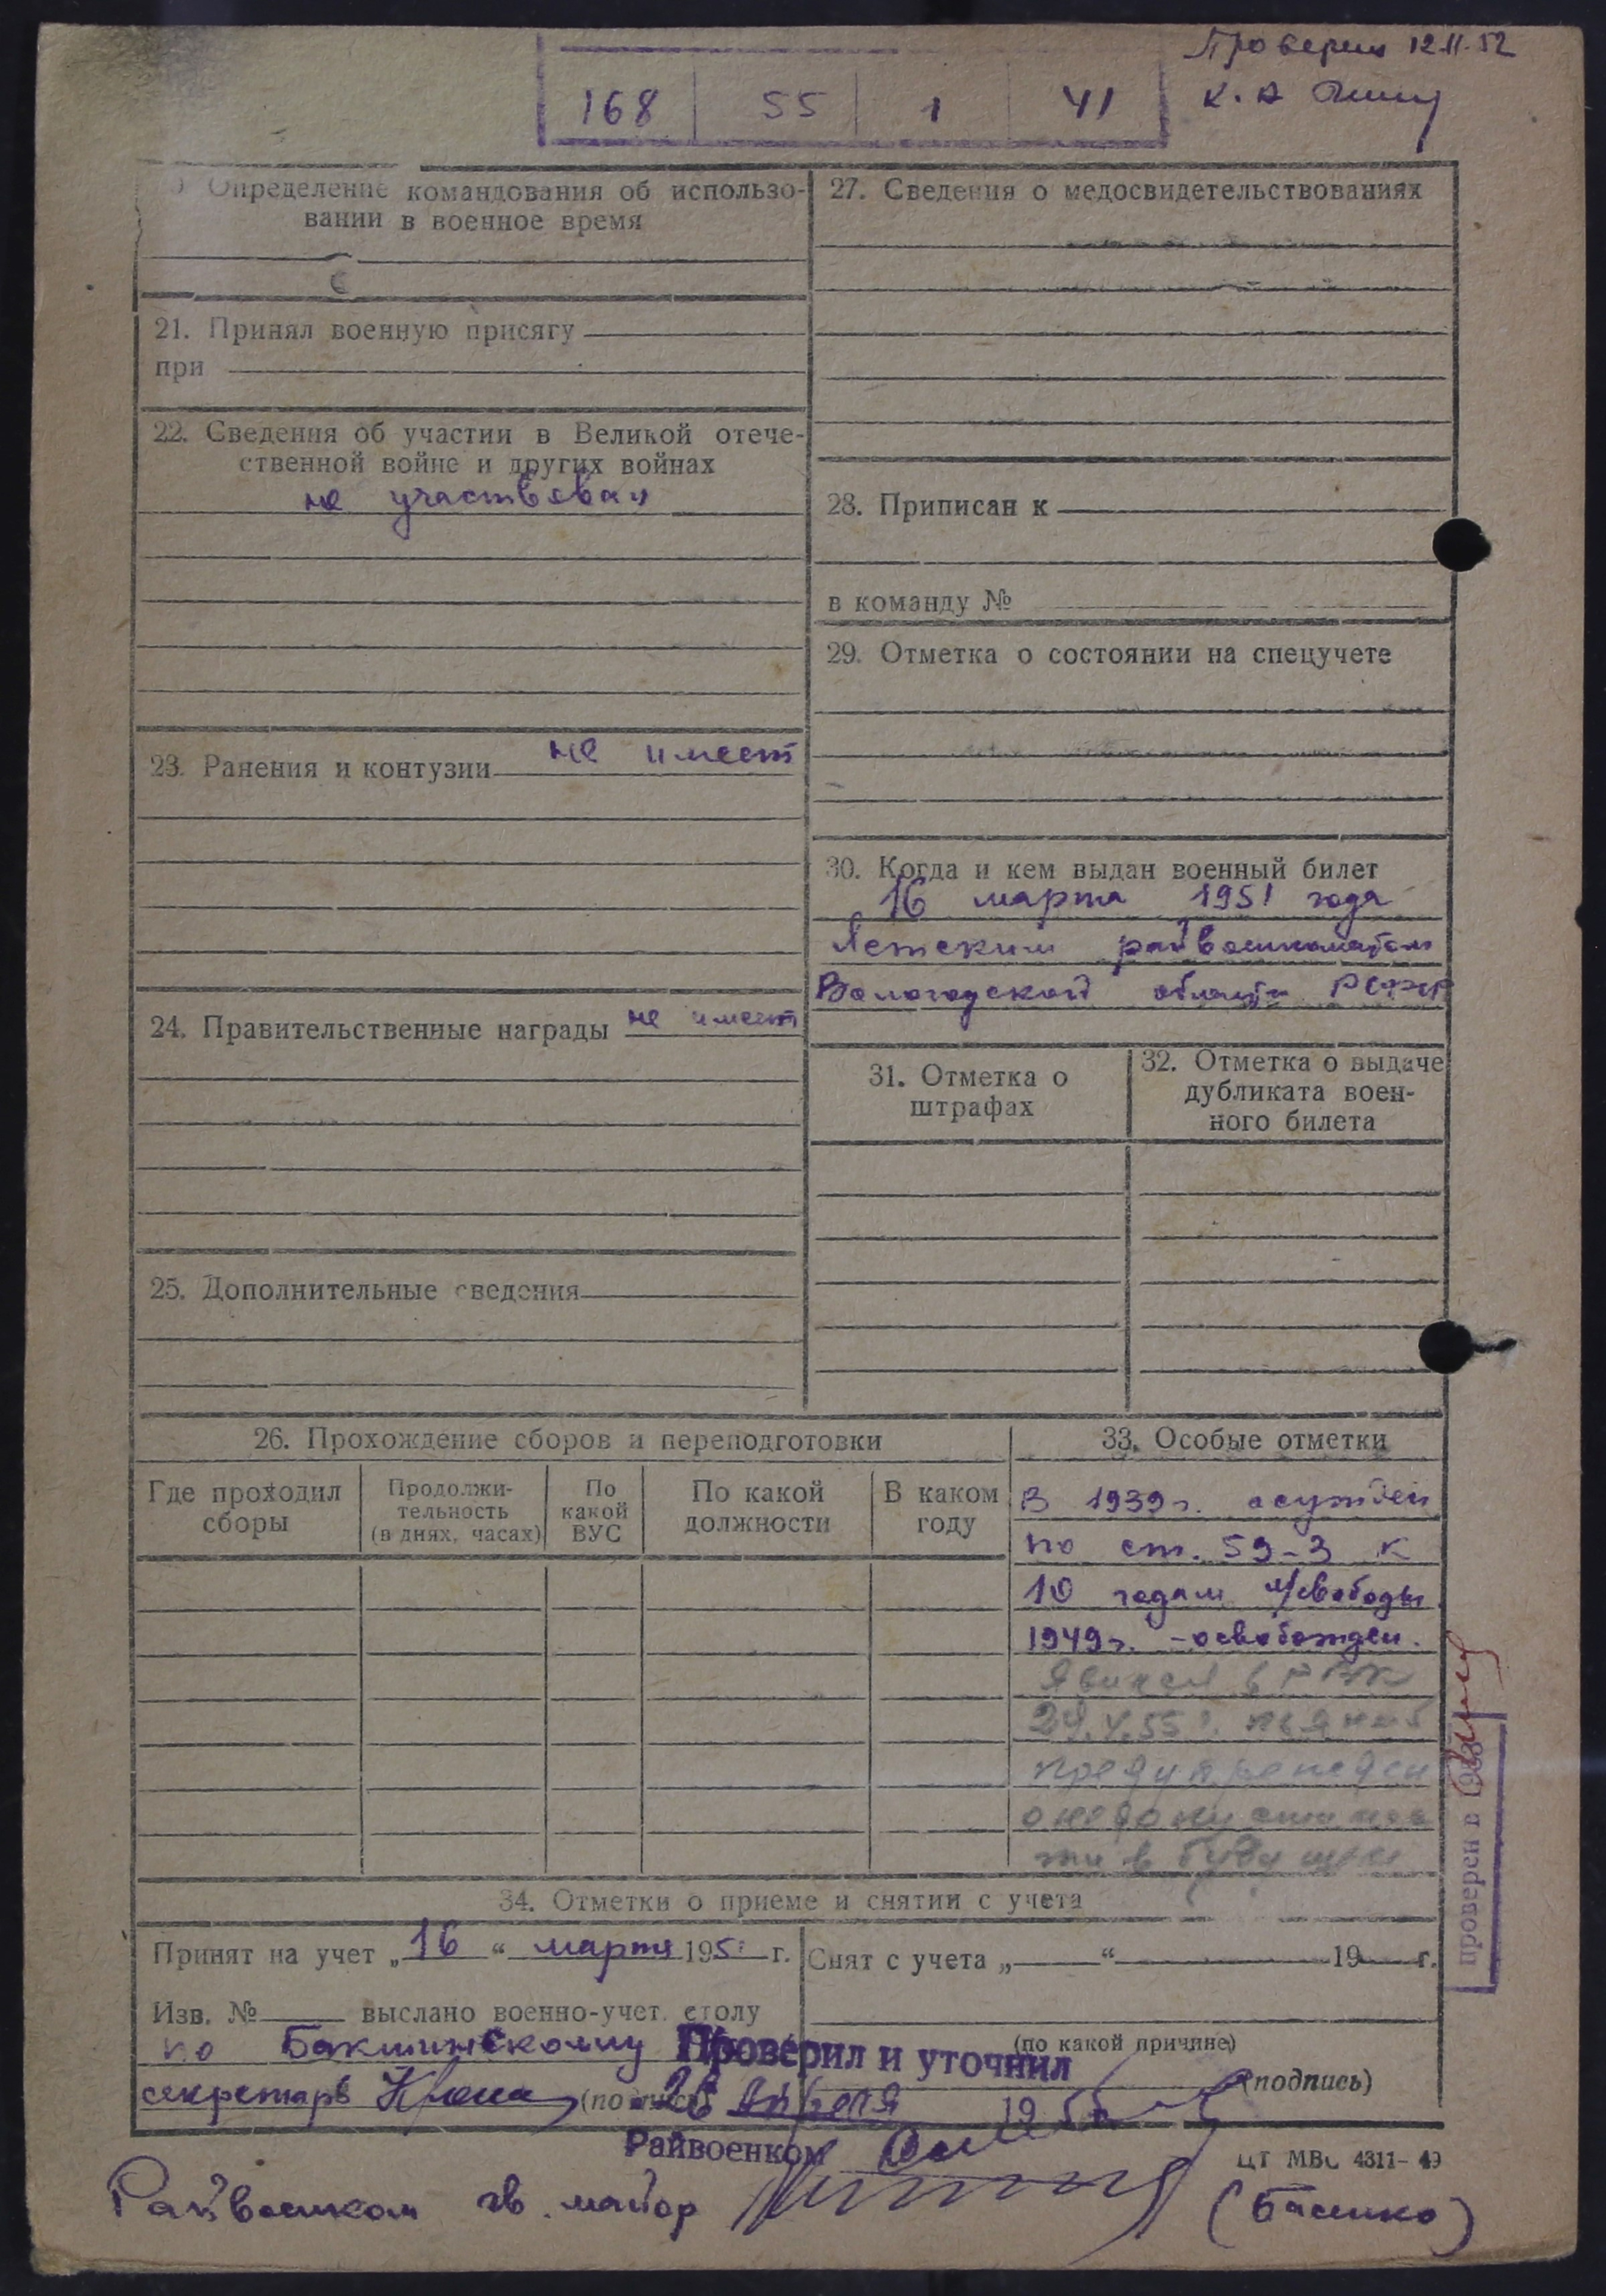 Проверен 12.11.52
К. А
168 55 1 41
Определение командования об использо-
вании в военное время
21. Принял военную присягу
при
22. Сведения об участии в Великой отече-
ственной войне и других войнах
не участвовал
23. Ранения и контузии не имеет
24. Правительственные награды не имеет
25. Дополнительные сведения
27. Сведения о медосвидетельствованиях
28. Приписан к
в команду №
29. Отметка о состоянии на спецучете
30. Когда и кем выдан военный билет
16 марта 1951 года
райвоенкоматом
Вологодской области РСФСР
31. Отметка о
штрафах
32. Отметка о выдаче
дубликата воен-
ного билета
26. Прохождение сборов и переподготовки
Где проходил
сборы
Продолжи-
тельность
(в днях, часах)
По
какой
ВУС
По какой
должности
В каком
году
33. Особые отметки
В 1939г. осужден
по ст. 59-3 к
10 годам л/свободы
1949г. - освобожден.
Явился в РВК
24.V.55г. пьяный
предупрежден
о недопустимос
ти в будущем
проверен в 1953
34. Отметки о приеме и снятии с учета
Принят на учет „16“ марта 195 г.
Изв. № выслано военно-учет. столу
по
секретарь (подпись)
Снят с учета „ “ 19 г.
(по какой причине)
(подпись)
Проверил и уточнил
26 апреля 195
Райвоенком
ЦТ МВС 4311-49
Райвоенком гв. майор (Басенко)